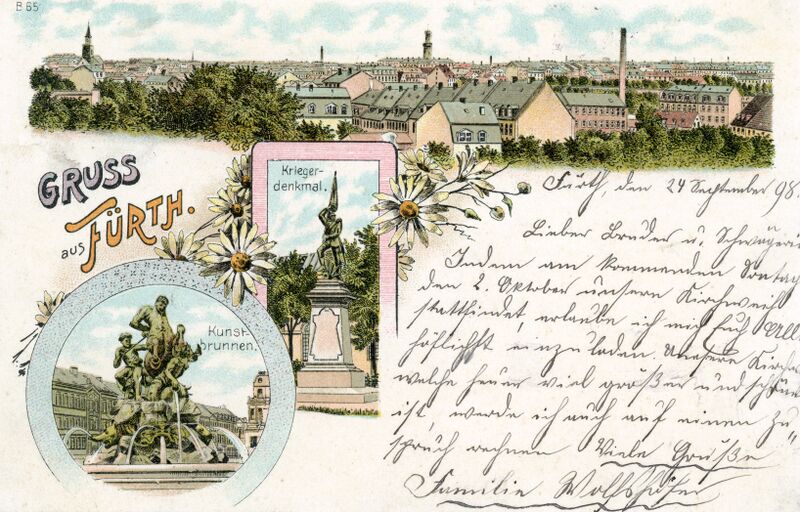 B 65
GRUSS
aus FÜRTH.
Krieger-
denkmal.
Kunst-
brunnen.
Fürth, den 24 September 98.
Lieber Bruder u. Schwägerin
Indem am kommenden Sontag
den 2. Oktober unsere Kirchweih
stattfindet, erlaube ich mich Euch Alle
höflichst einzuladen. Unsere Kirchweih
welche heuer viel größer und schöner
ist, werde ich auch auf einen Zu
spruch rechnen Viele Grüße
Familie Wolfshöfer